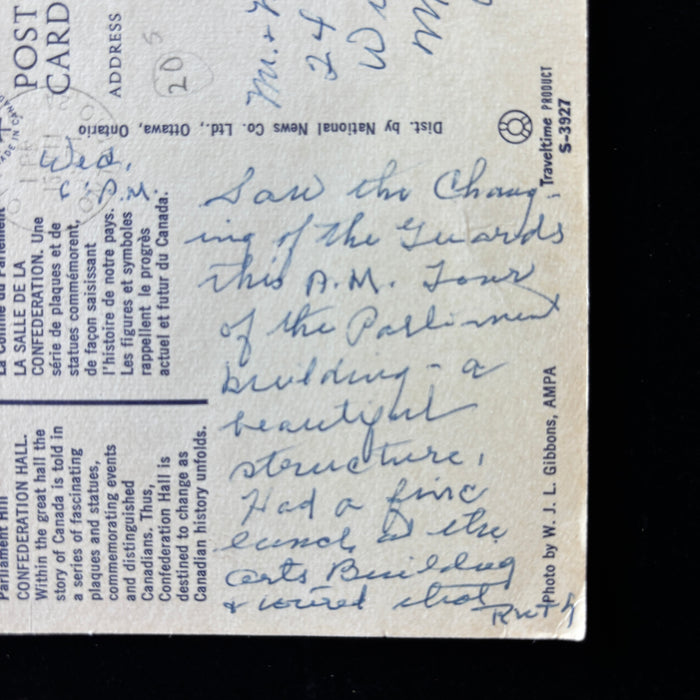 POST
CARD
ADDRESS
20 5
Mr. &
24
W
M
Dist. by National News Co. Ltd., Ottawa, Ontario
Traveltime PRODUCT
S-3927
MADE IN CANADA
Wed.
P.M.
Saw the Chang-
ing of the Guards
this A.M. Tour
of the Parliment
building - a
beautiful
structure.
Had a fine
lunch at the
Arts Building
& toured that
Ruth
LA SALLE DE LA
CONFÉDERATION. Une
série de plaques et de
statues commémorent,
de façon saisissant
l'histoire de notre pays.
Les figures et symboles
rappellent le progrès
actuel et futur du Canada.
Parliament Hill
CONFEDERATION HALL.
Within the great hall the
story of Canada is told in
a series of fascinating
plaques and statues,
commemorating events
and distinguished
Canadians. Thus,
Confederation Hall is
destined to change as
Canadian history unfolds.
Photo by W. J. L. Gibbons, AMPA